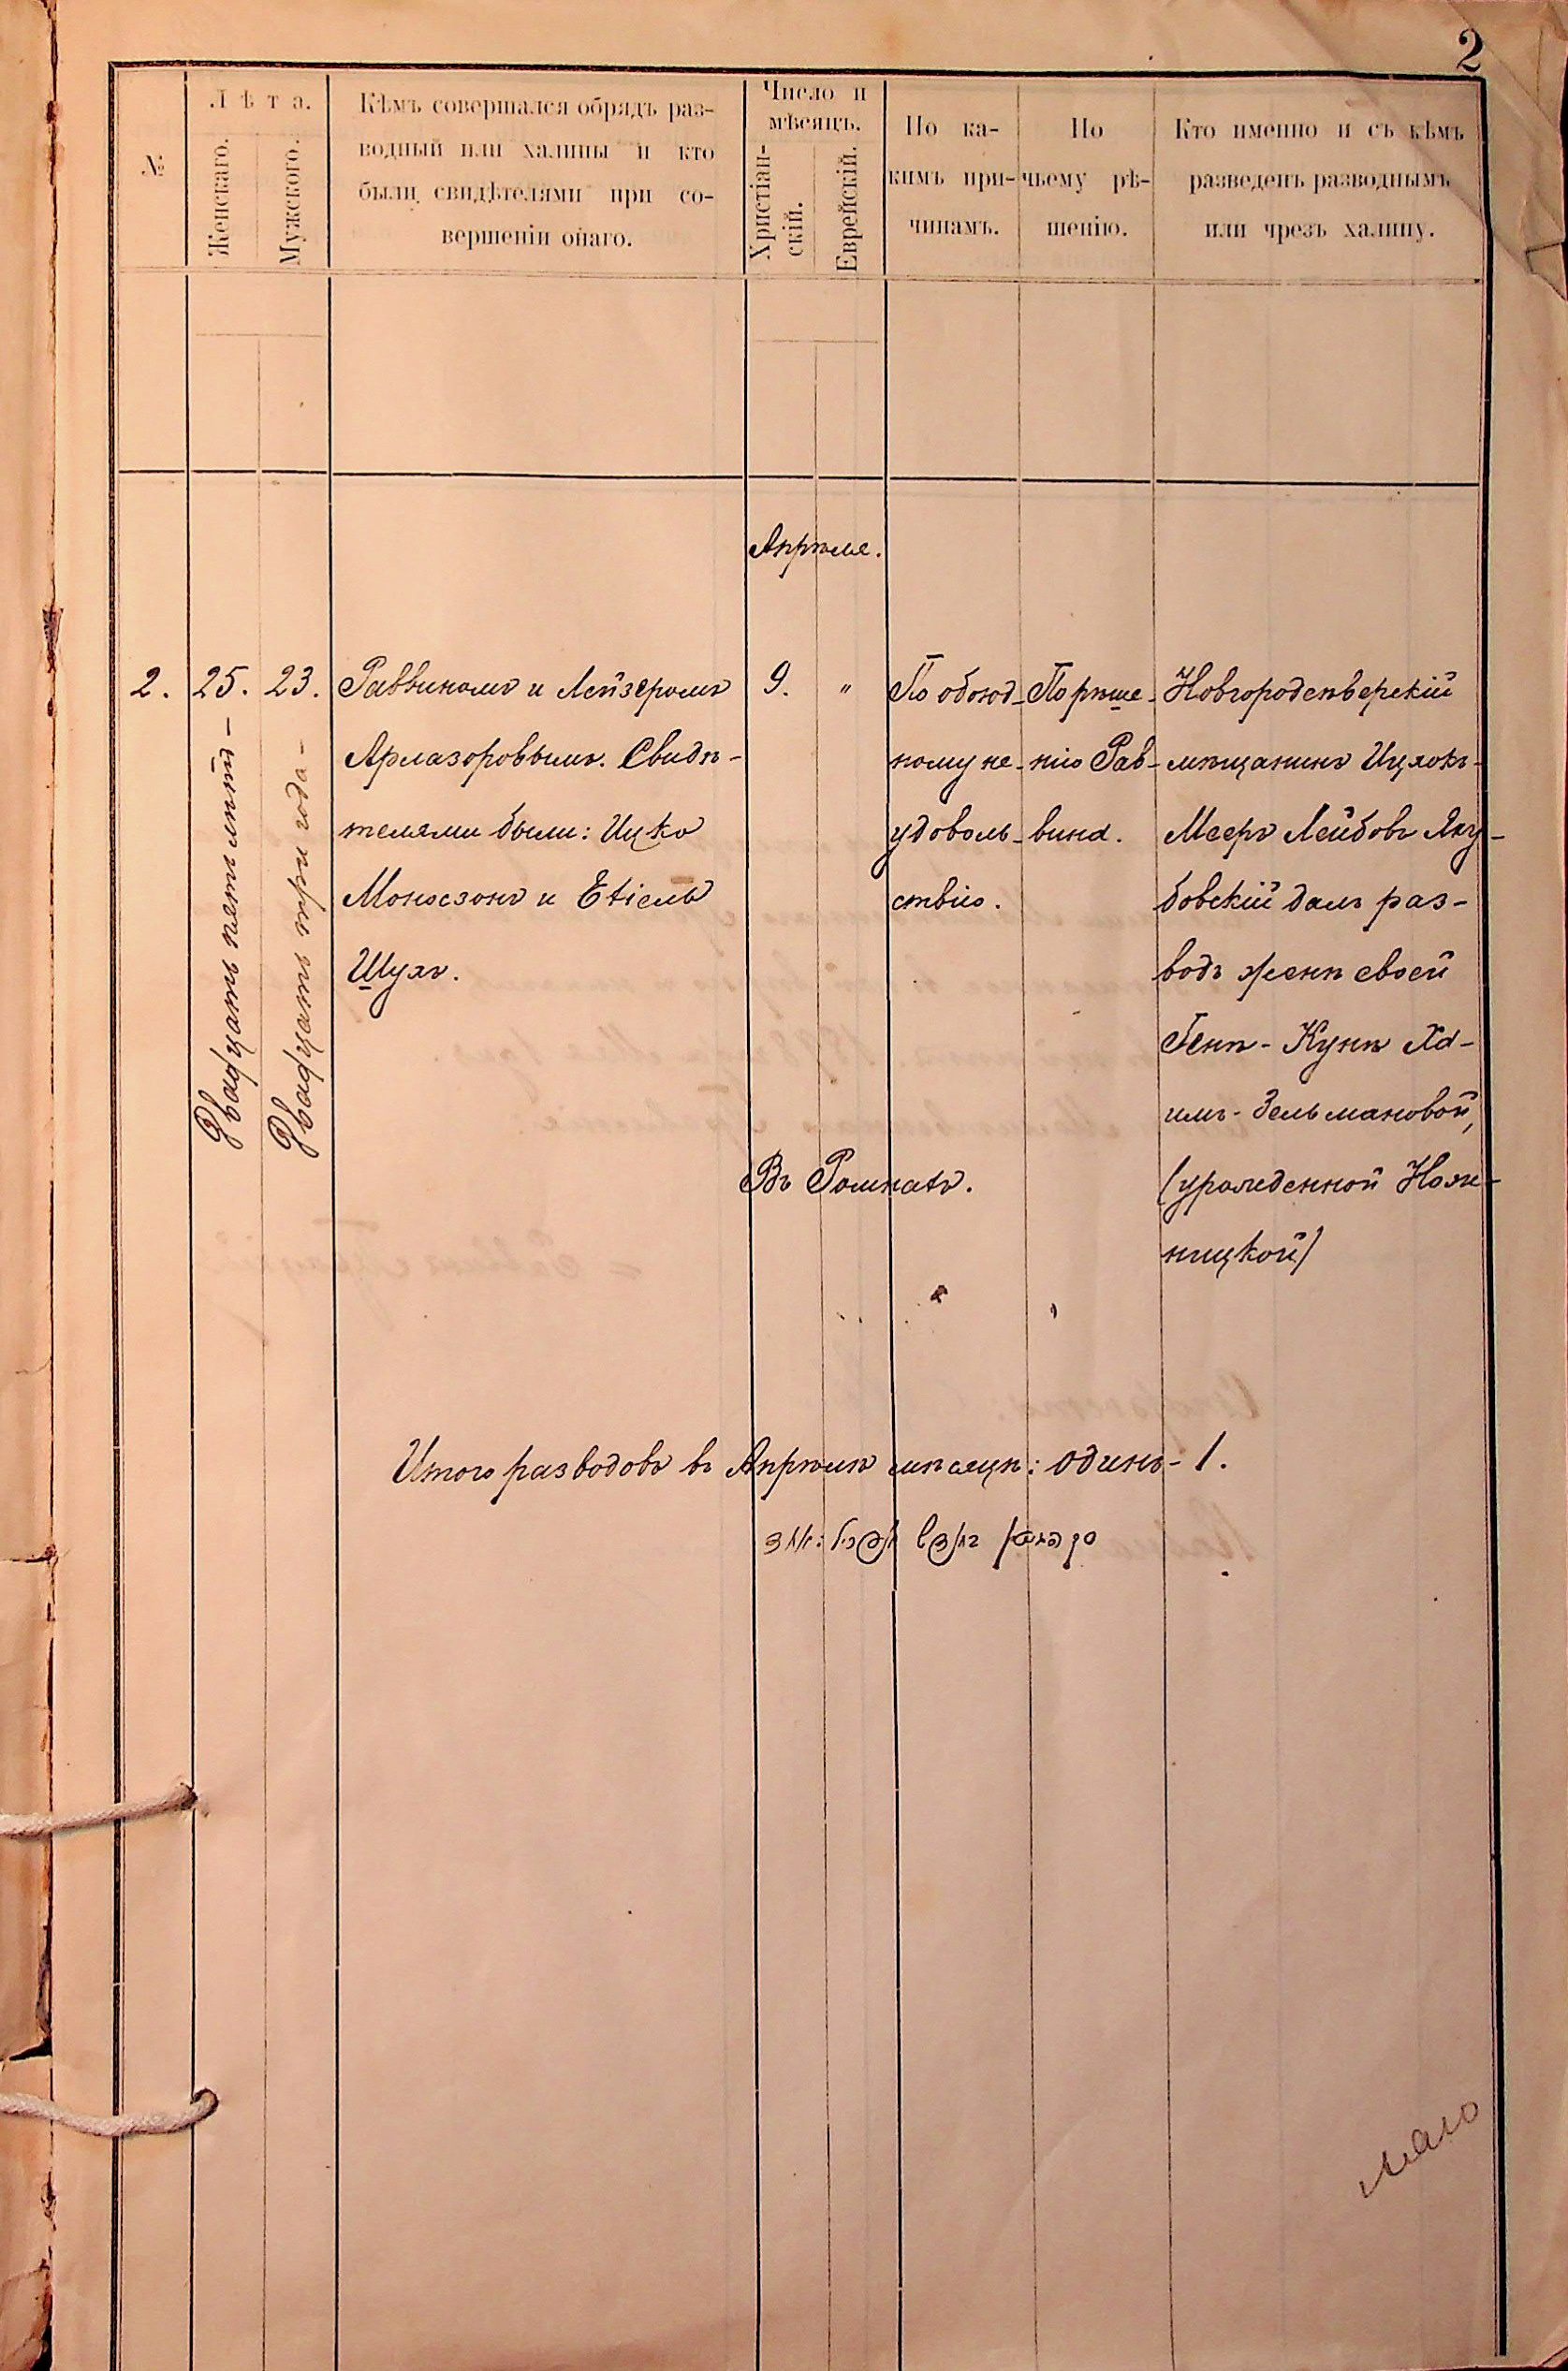 2
№
Лѣта.
Женскаго.
Мужского.
Кѣмъ совершался обрядъ раз-
водный или халицы и кто
были свидѣтелями при со-
вершеніи онаго.
Число и
мѣсяцъ.
Христіан-
скій.
Еврейскій.
По ка-
кимъ при-
чинамъ.
По
чьему рѣ-
шенію.
Кто именно и съ кѣмъ
разведенъ разводнымъ
или чрезъ халицу.
Апрѣля.
2.
25.
Двадцать пять лѣтъ –
23.
Двадцать три года –
Раввиномъ и Лейзеромъ
Арлазоровымъ. Свидѣ-
телями были: Ицко
Моносзонъ и
Шухъ.
9.
"
По обоюд-
ному не-
удоволь-
ствію.
По рѣше-
нію Рав-
вина.
Новгородсѣверскій
мѣщанинъ Ицхокъ-
Мееръ Лейбовъ Яку-
бовскій далъ раз-
водъ женѣ своей
Генѣ-Кунѣ Ха-
имъ-Зельмановой,
(урожденной Нож-
ницкой)
Въ Ромнахъ.
Итого разводовъ въ Апрѣлѣ мѣсяцѣ: одинъ-1.